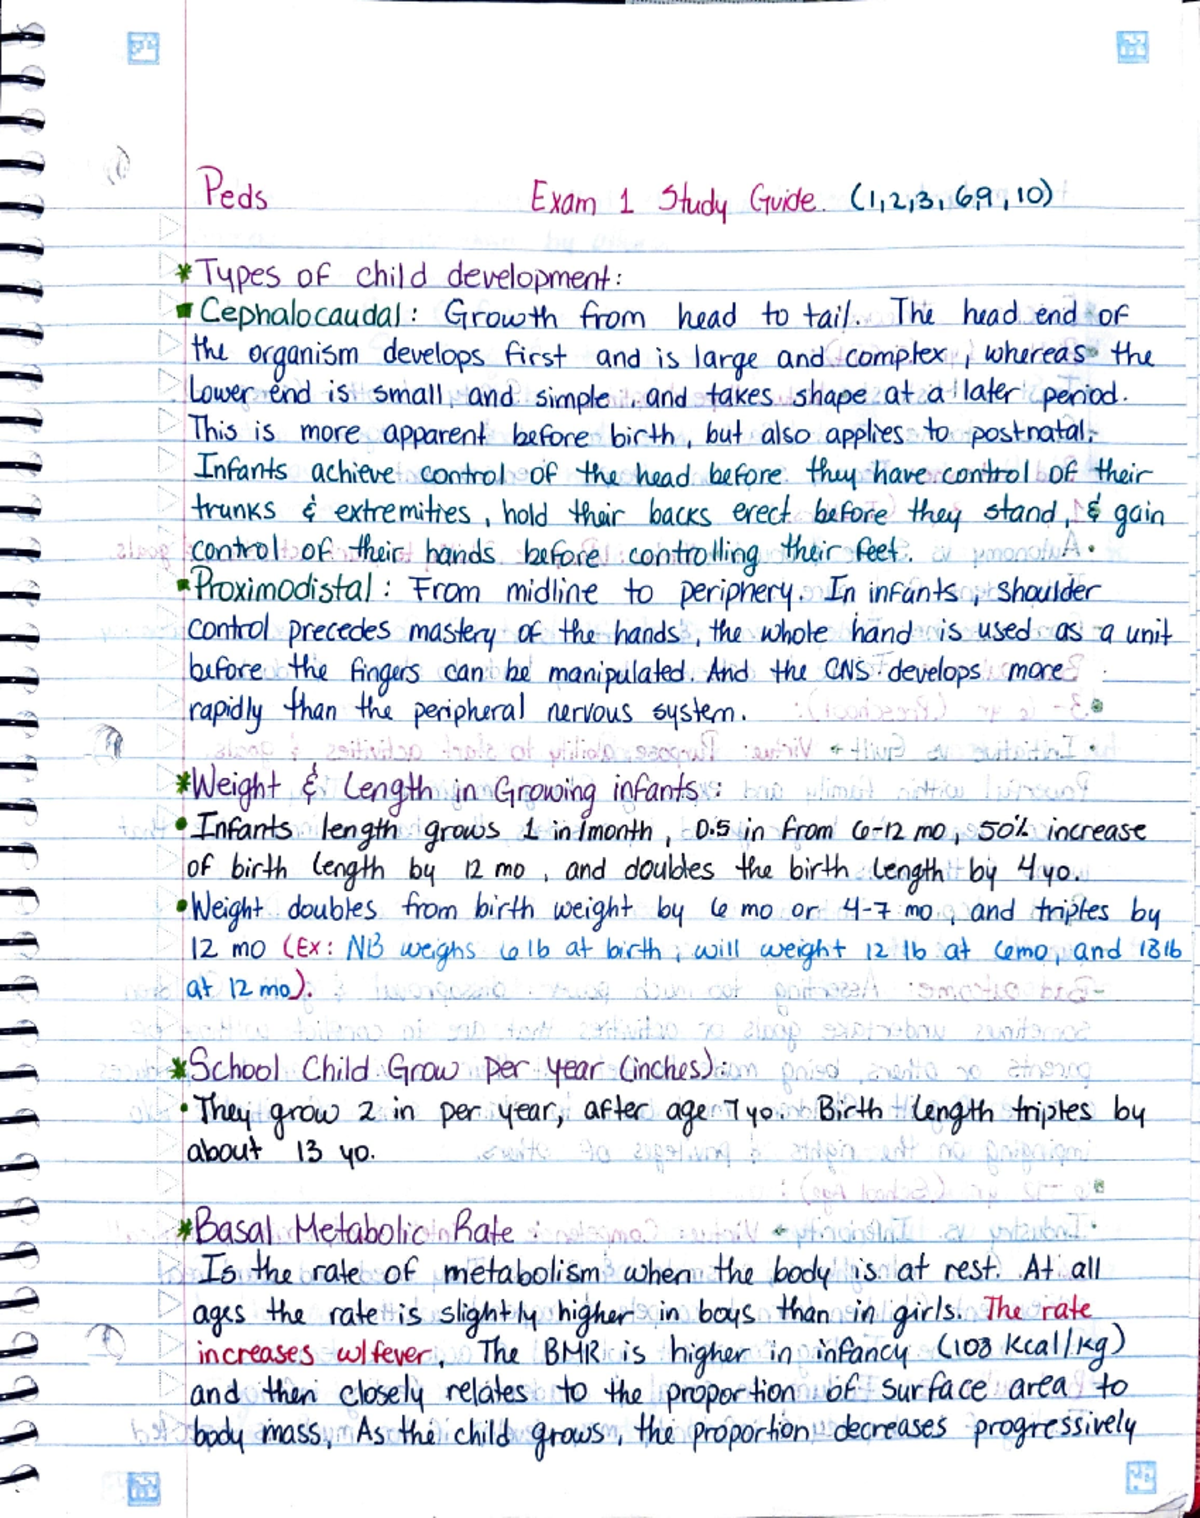 Peds Exam 1 Study Guide. (1,2,3, 6,9, 10)
*Types of child development:
▪Cephalocaudal: Growth from head to tail. The head end of
the organism develops first and is large and complex, whereas the
lower end is small and simple and takes shape at a later period.
This is more apparent before birth, but also applies to postnatal.
Infants achieve control of the head before they have control of their
trunks & extremities, hold their backs erect before they stand, & gain
control of their hands before controlling their feet.
▪Proximodistal: From midline to periphery. In infants, shoulder
control precedes mastery of the hands, the whole hand is used as a unit
before the fingers can be manipulated. And the CNS develops more
rapidly than the peripheral nervous system.
*Weight & Length in Growing infants:
•Infants length grows 1 in/month, 0.5 in from 6-12 mo, 50% increase
of birth length by 12 mo, and doubles the birth length by 4 yo.
•Weight doubles from birth weight by 6 mo or 4-7 mo, and triples by
12 mo (Ex: NB weighs 6 lb at birth, will weight 12 lb at 6mo, and 18lb
at 12 mo).
*School Child Grow per year (inches):
•They grow 2 in per year, after age 7 yo. Birth length triples by
about 13 yo.
*Basal Metabolic Rate:
Is the rate of metabolism when the body is at rest. At all
ages the rate is slightly higher in boys than in girls. The rate
increases w/fever. The BMR is higher in infancy (108 Kcal/kg)
and then closely relates to the proportion of surface area to
body mass. As the child grows, the proportion decreases progressively